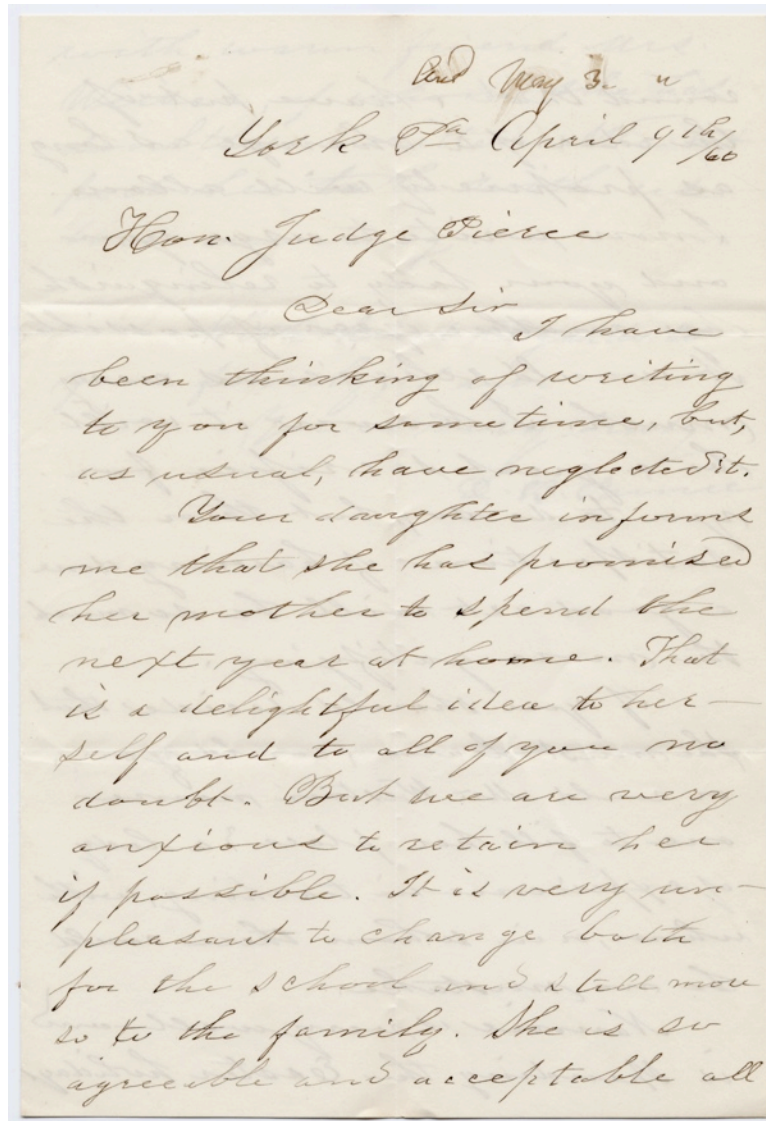 May 3. "
York Pa April 9th/60
Hon. Judge Pierce
Dear Sir
I have
been thinking of writing
to you for sometime, but,
as usual, have neglected it.
Your daughter informs
me that she has promised
her mother to spend the
next year at home. That
is a delightful idea to her-
self and to all of you no
doubt. But we are very
anxious to retain her
if possible. It is very un-
pleasant to change both
for the school and still more
so to the family. She is so
agreeable and acceptable all